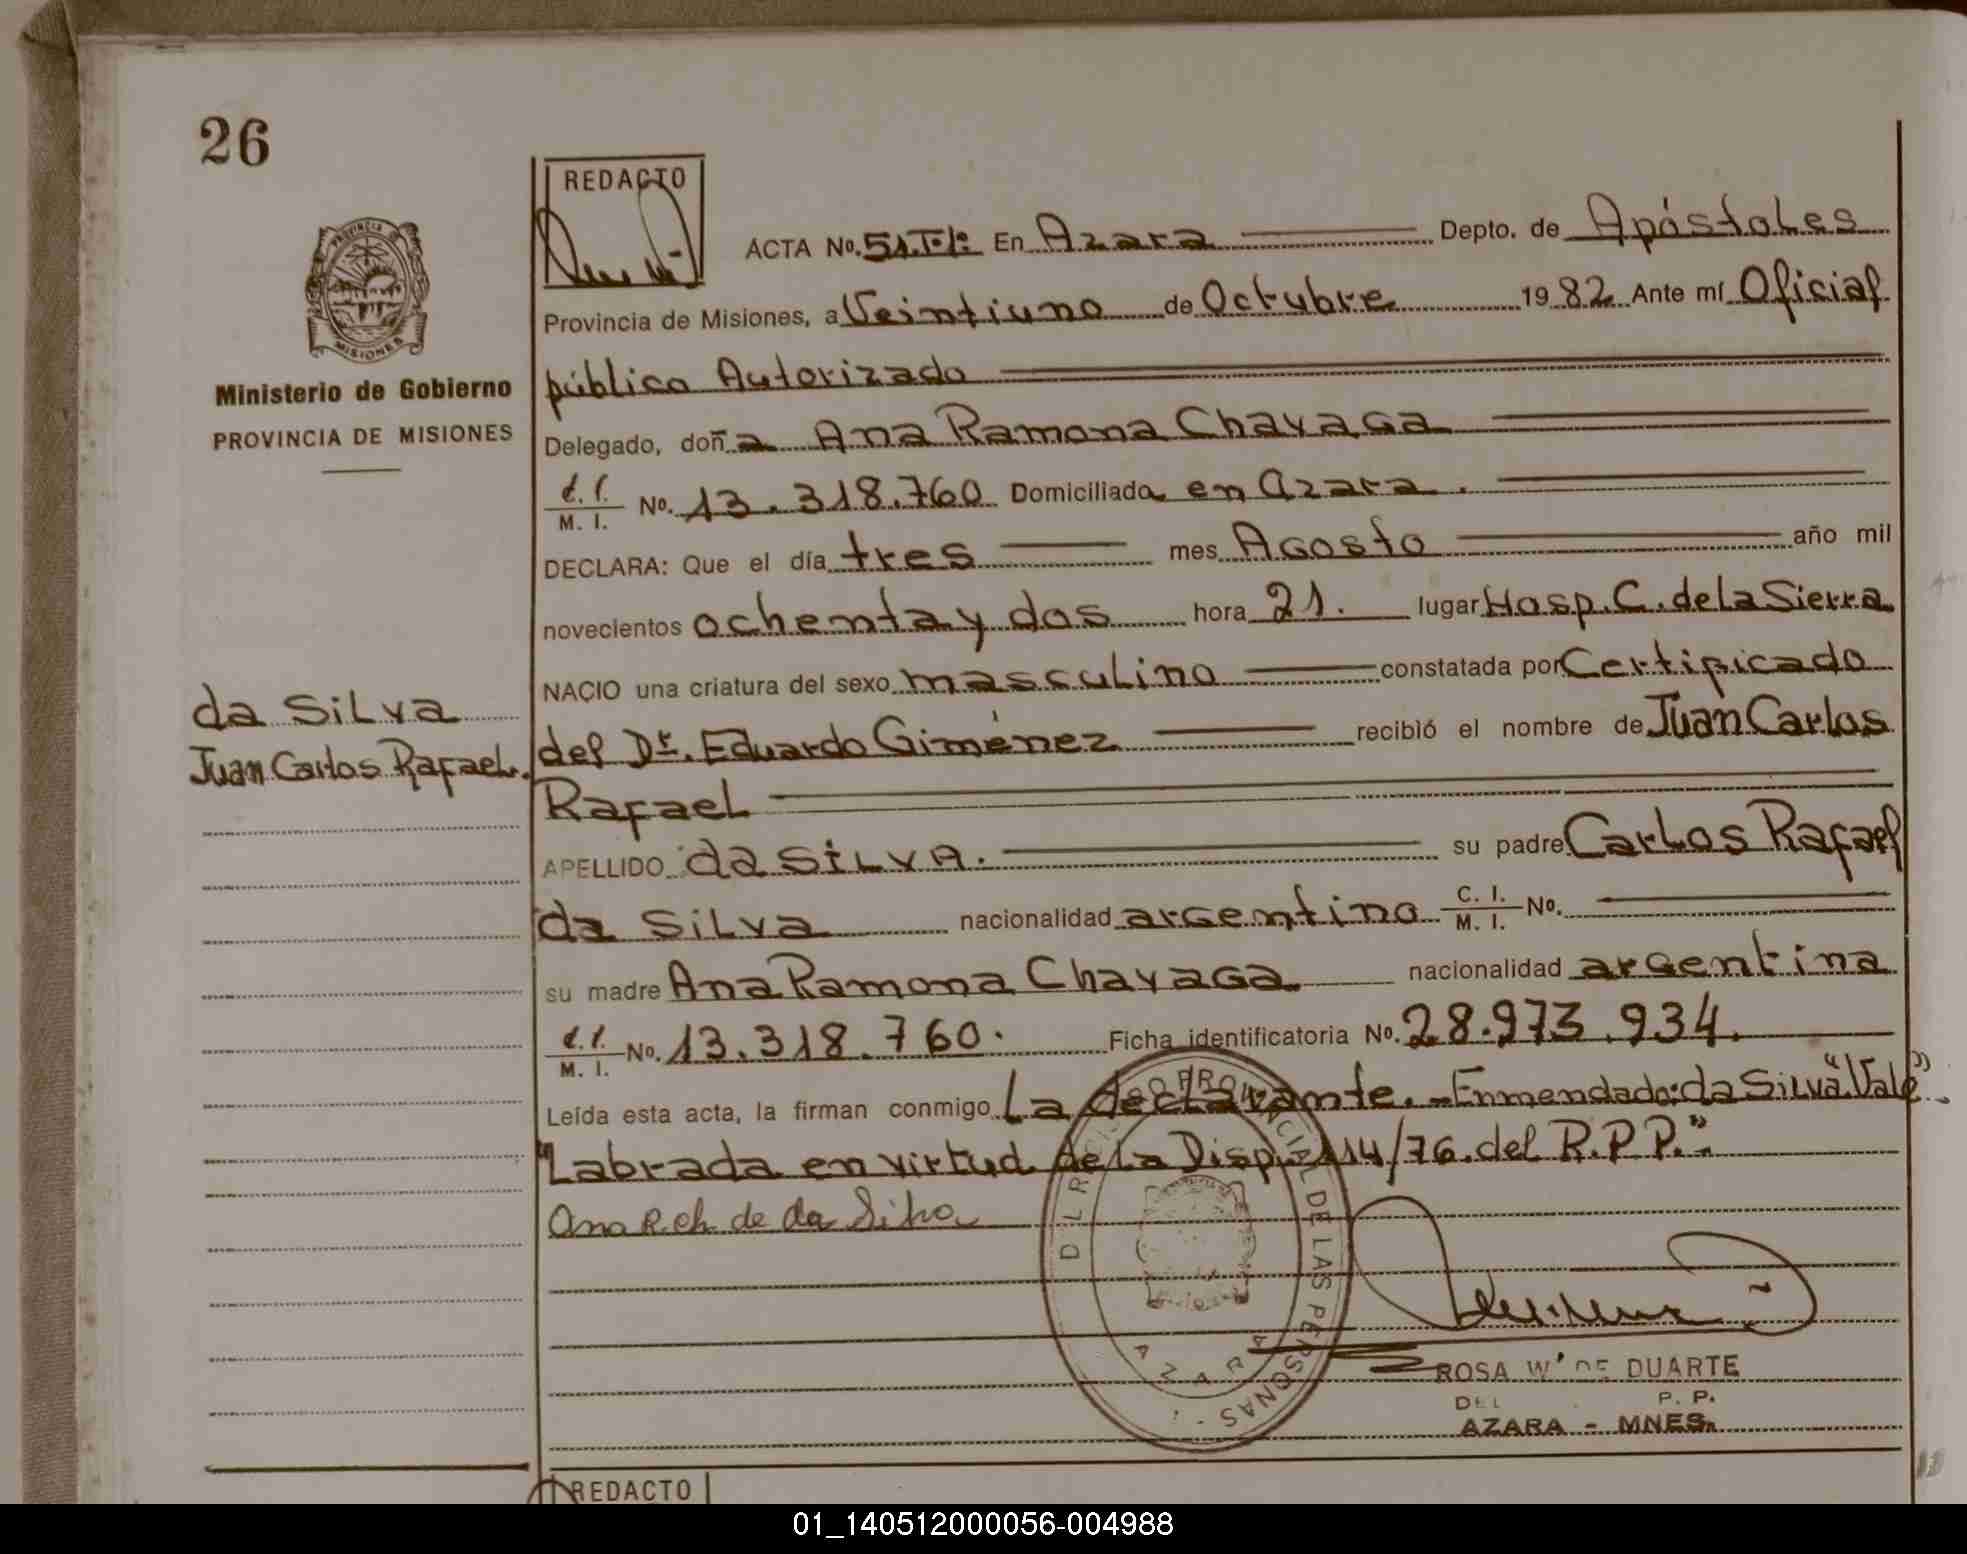 26
REDACTO
ACTA No. 51.Tº1º En Azara Depto. de Apóstoles
Provincia de Misiones, a Veintiuno de Octubre 1982 Ante mí Oficial
público Autorizado
Delegado, doña Ana Ramona Chavaga
C.I. M. I. No. 13.318.760 Domiciliada en Azara.
DECLARA: Que el día tres mes Agosto año mil
novecientos ochenta y dos hora 21. lugar Hosp. C. de la Sierra
NACIO una criatura del sexo masculino constatada por Certificado
del Dr. Eduardo Giménez recibió el nombre de Juan Carlos
Rafael
APELLIDO da SiLVA. su padre Carlos Rafael
da Silva nacionalidad argentino C. I. M. I. No.
su madre Ana Ramona Chavaga nacionalidad argentina
C.I. M. I. No. 13.318.760. Ficha identificatoria No. 28.973.934.
Leída esta acta, la firman conmigo La declarante.-Enmendado: da Silva "Vale".
"Labrada en virtud de la Disp. 114/76. del R.P.P."
Ana R Ch de da Silva
PROVINCIA DE MISIONES
Ministerio de Gobierno
PROVINCIA DE MISIONES
da Silva
Juan Carlos Rafael.
PROVINCIAL DE LAS PERSONAS
AZARA
ROSA W DE DUARTE
DEL P. P.
AZARA - MNES.
REDACTO
01_140512000056-004988